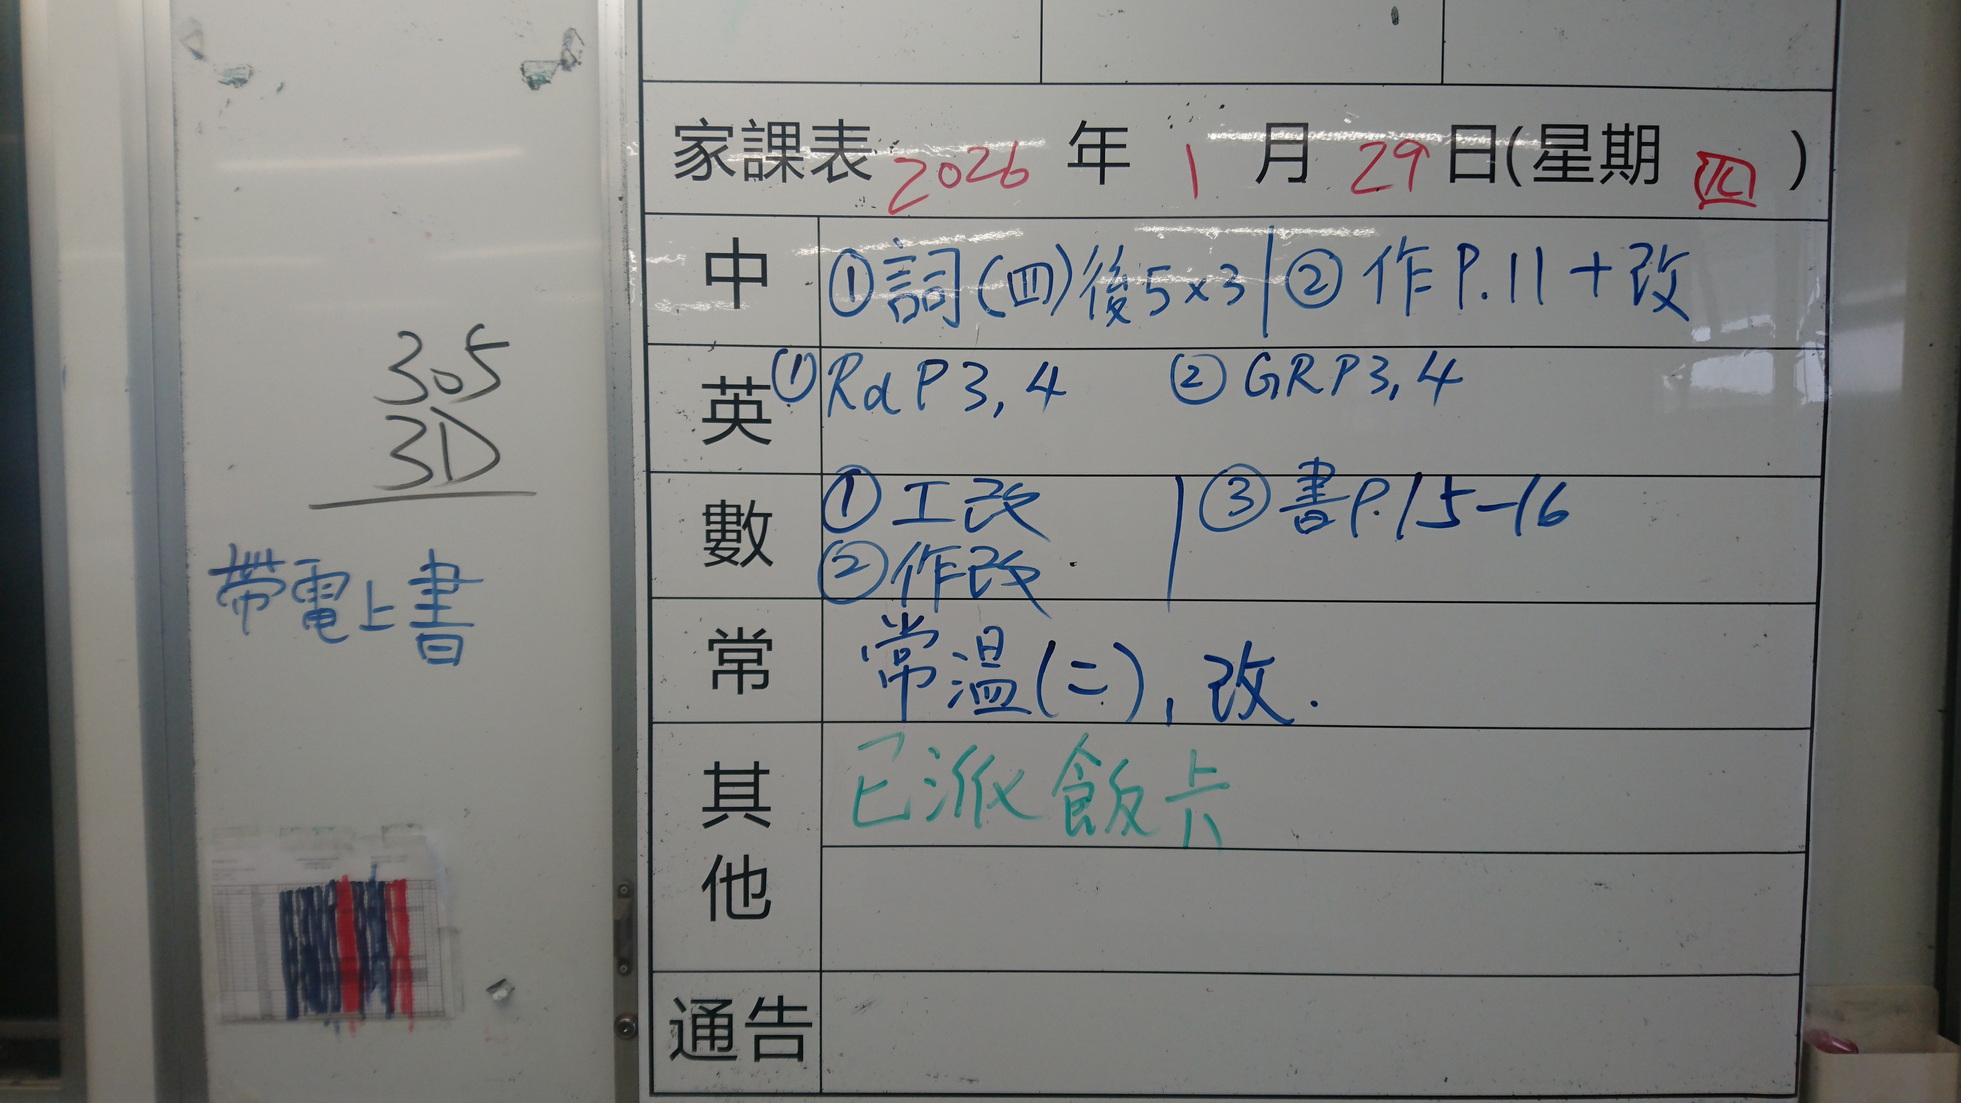 305
3D
帶電上書
家課表 2026 年 1 月 29 日(星期 四 )
中 ①詞(四)後5x3 | ② 作 P.11 + 改
英 ① Rd P 3, 4 ② GR P3, 4
數 ① 工改 | ③ 書P.15-16
② 作改.
常 常溫(二), 改.
其他 已派飯卡
通告